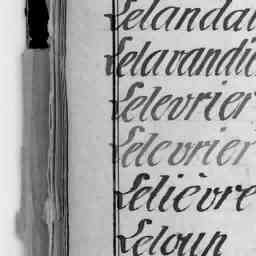 Lelandai
Lelavandie
Lelevrier
Lelevrier
Lelièvre
Leloup